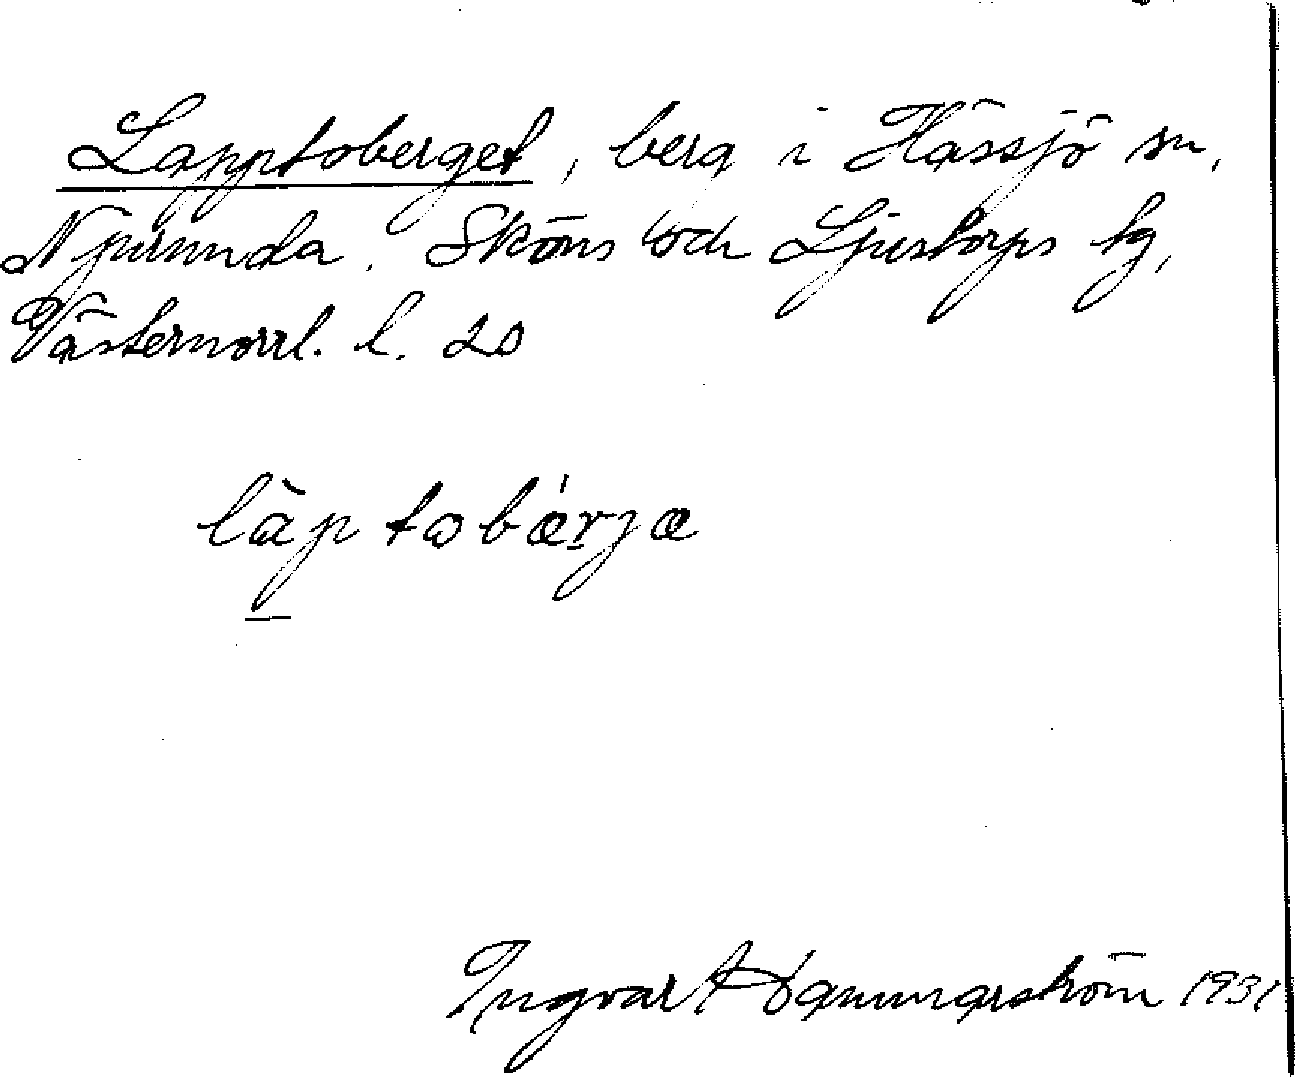 Lapptoberget, berg i Hässjö sn,
Njurunda, Sköns och Ljustorps tg,
Västernorrl. l. 20
làptobǽrjæ
Ingvar Hammarström 1931